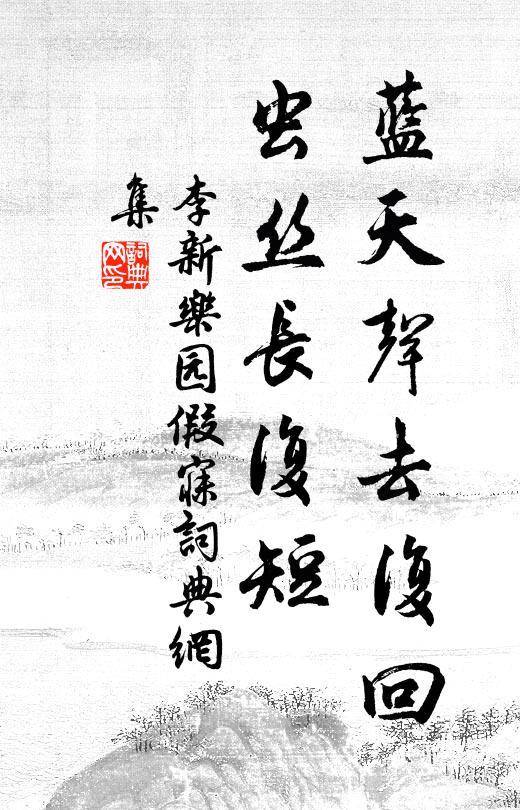 蓝天聲去復回
虫丝長復短
李新樂园假寐詞典網
集
詞典
网印